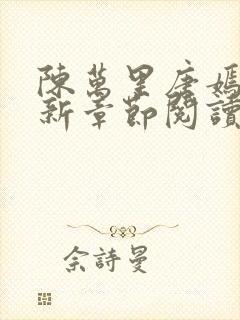 陳萬里唐嫣
新章節閱讀
佘詩曼